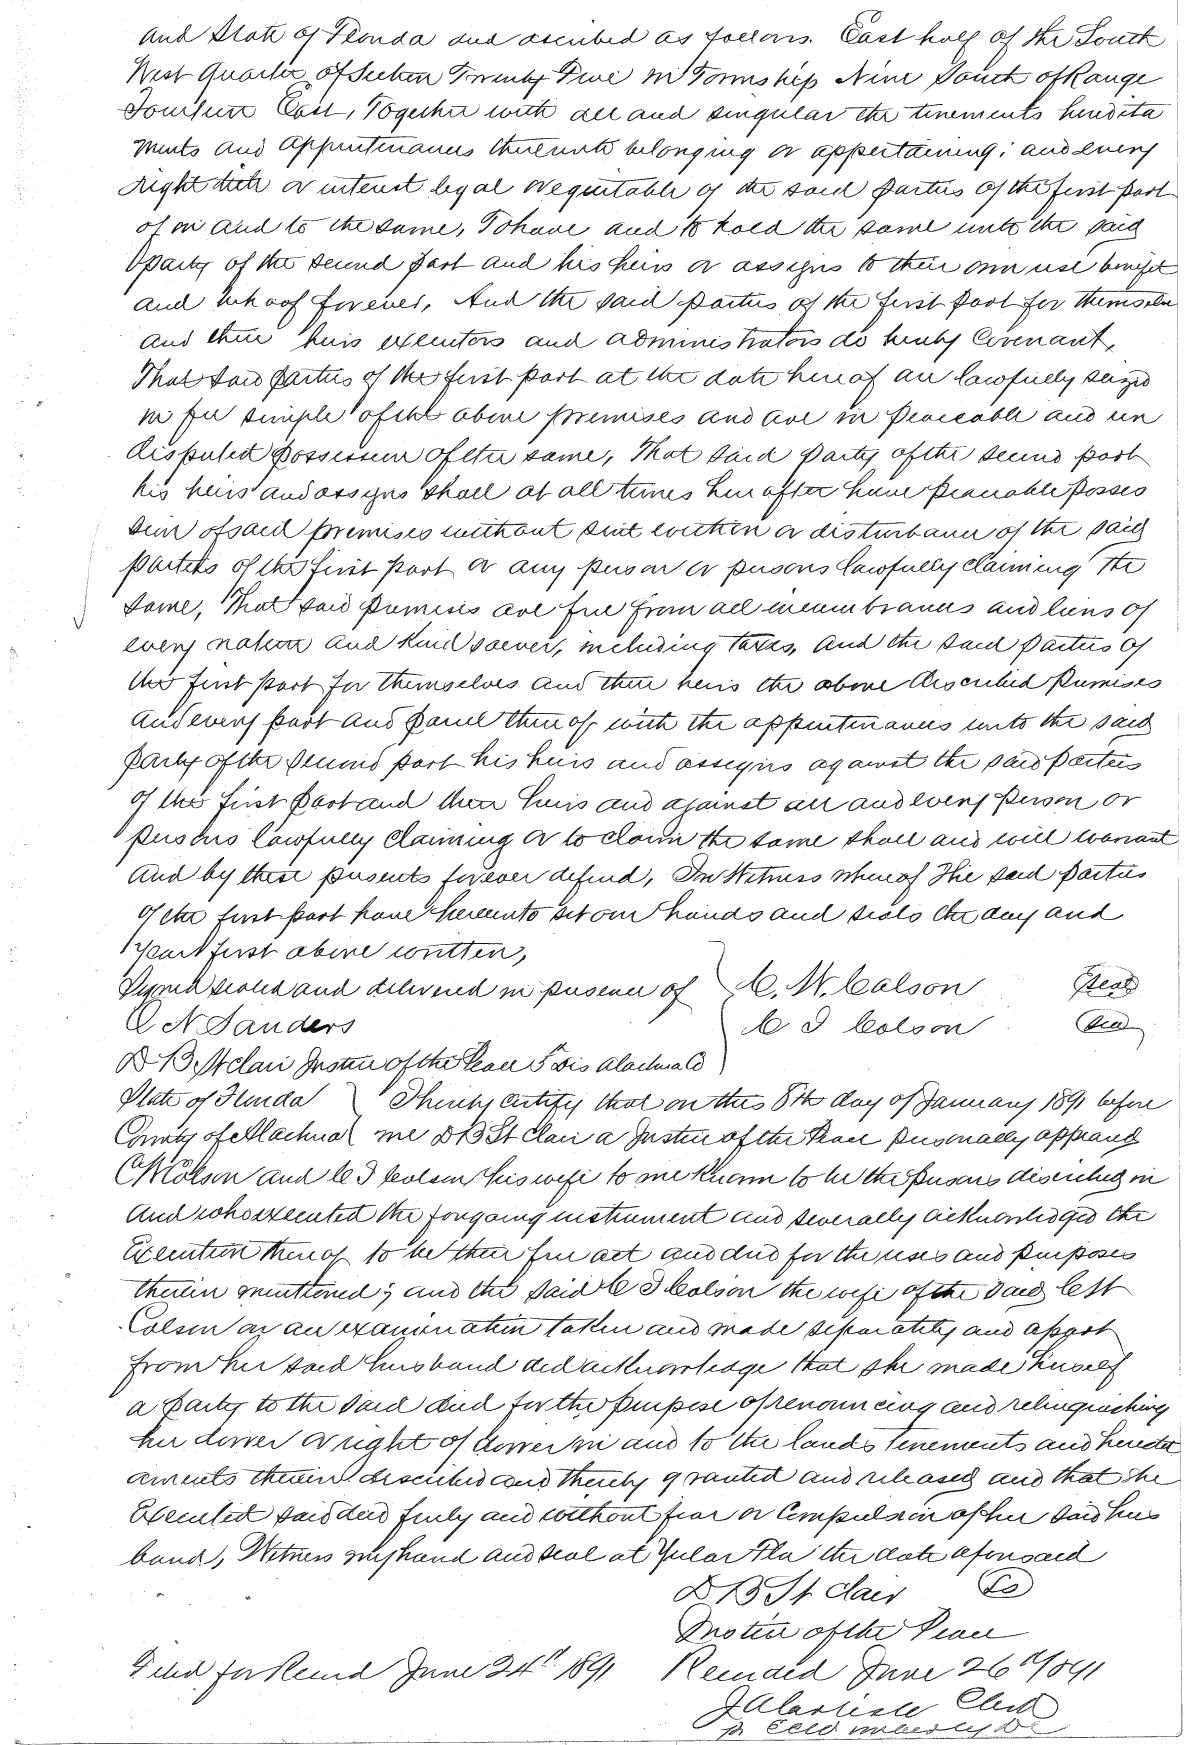 and State of Florida and described as follows. East half of the South
West Quarter of Section Twenty Five in Township Nine South of Range
Fourteen East, Together with all and singular the tenements heredita
ments and appurtenances thereunto belonging or appertaining; and every
right title or interest legal or equitable of the said parties of the first part
of in and to the same, To have and to hold the same unto the said
party of the second part and his heirs or assigns to their own use benefit
and behoof forever, And the said parties of the first part for themselv
and their heirs executors and administrators do hereby Covenant,
That said parties of the first part at the date hereof are lawfully seized
in fee simple of the above premises and are in peaceable and un
disputed possession of the same, That said party of the second part
his heirs and assigns shall at all times hereafter have peaceable posses
sion of said premises without suit eviction or disturbance of the said
parties of the first part or any person or persons lawfully claiming the
same, That said premises are free from all incumbrances and liens of
every nature and kind soever, including taxes, and the said parties of
the first part for themselves and their heirs the above described premises
and every part and parcel thereof with the appurtenances unto the said
party of the second part his heirs and assigns against the said parties
of the first part and their heirs and against all and every person or
persons lawfully claiming or to claim the same shall and will warrant
and by these presents forever defend, In Witness whereof The said parties
of the first part have hereunto set our hands and seals the day and
year first above written,
Signed sealed and delivered in presence of C. W. Colson Seal
N Sanders C I Colson Seal
D B St Clair Justice of the Peace 5 Dis Alachua Co
State of Florida I hereby certify that on this 8th day of January 1891 before
County of Alachua me D B St Clair a Justice of the Peace personally appeared
C W Colson and C I Colson his wife to me known to be the persons described in
and who executed the foregoing instrument and severally acknowledged the
Execution thereof to be their free act and deed for the uses and purposes
therein mentioned; and the said C I Colson the wife of the said C W
Colson on an examination taken and made separately and apart
from her said husband did acknowledge that she made herself
a party to the said deed for the purpose of renouncing and relinquishing
her dower or right of dower in and to the lands tenements and heredit
aments therein described and thereby granted and released and that she
Executed said deed freely and without fear or Compulsion of her said hus
band, Witness my hand and seal at Fla the date aforesaid
D B St Clair LS
Justice of the Peace
Filed for Record June 24th 1891 Recorded June 26th 1891
J A Carlisle Clerk
DC